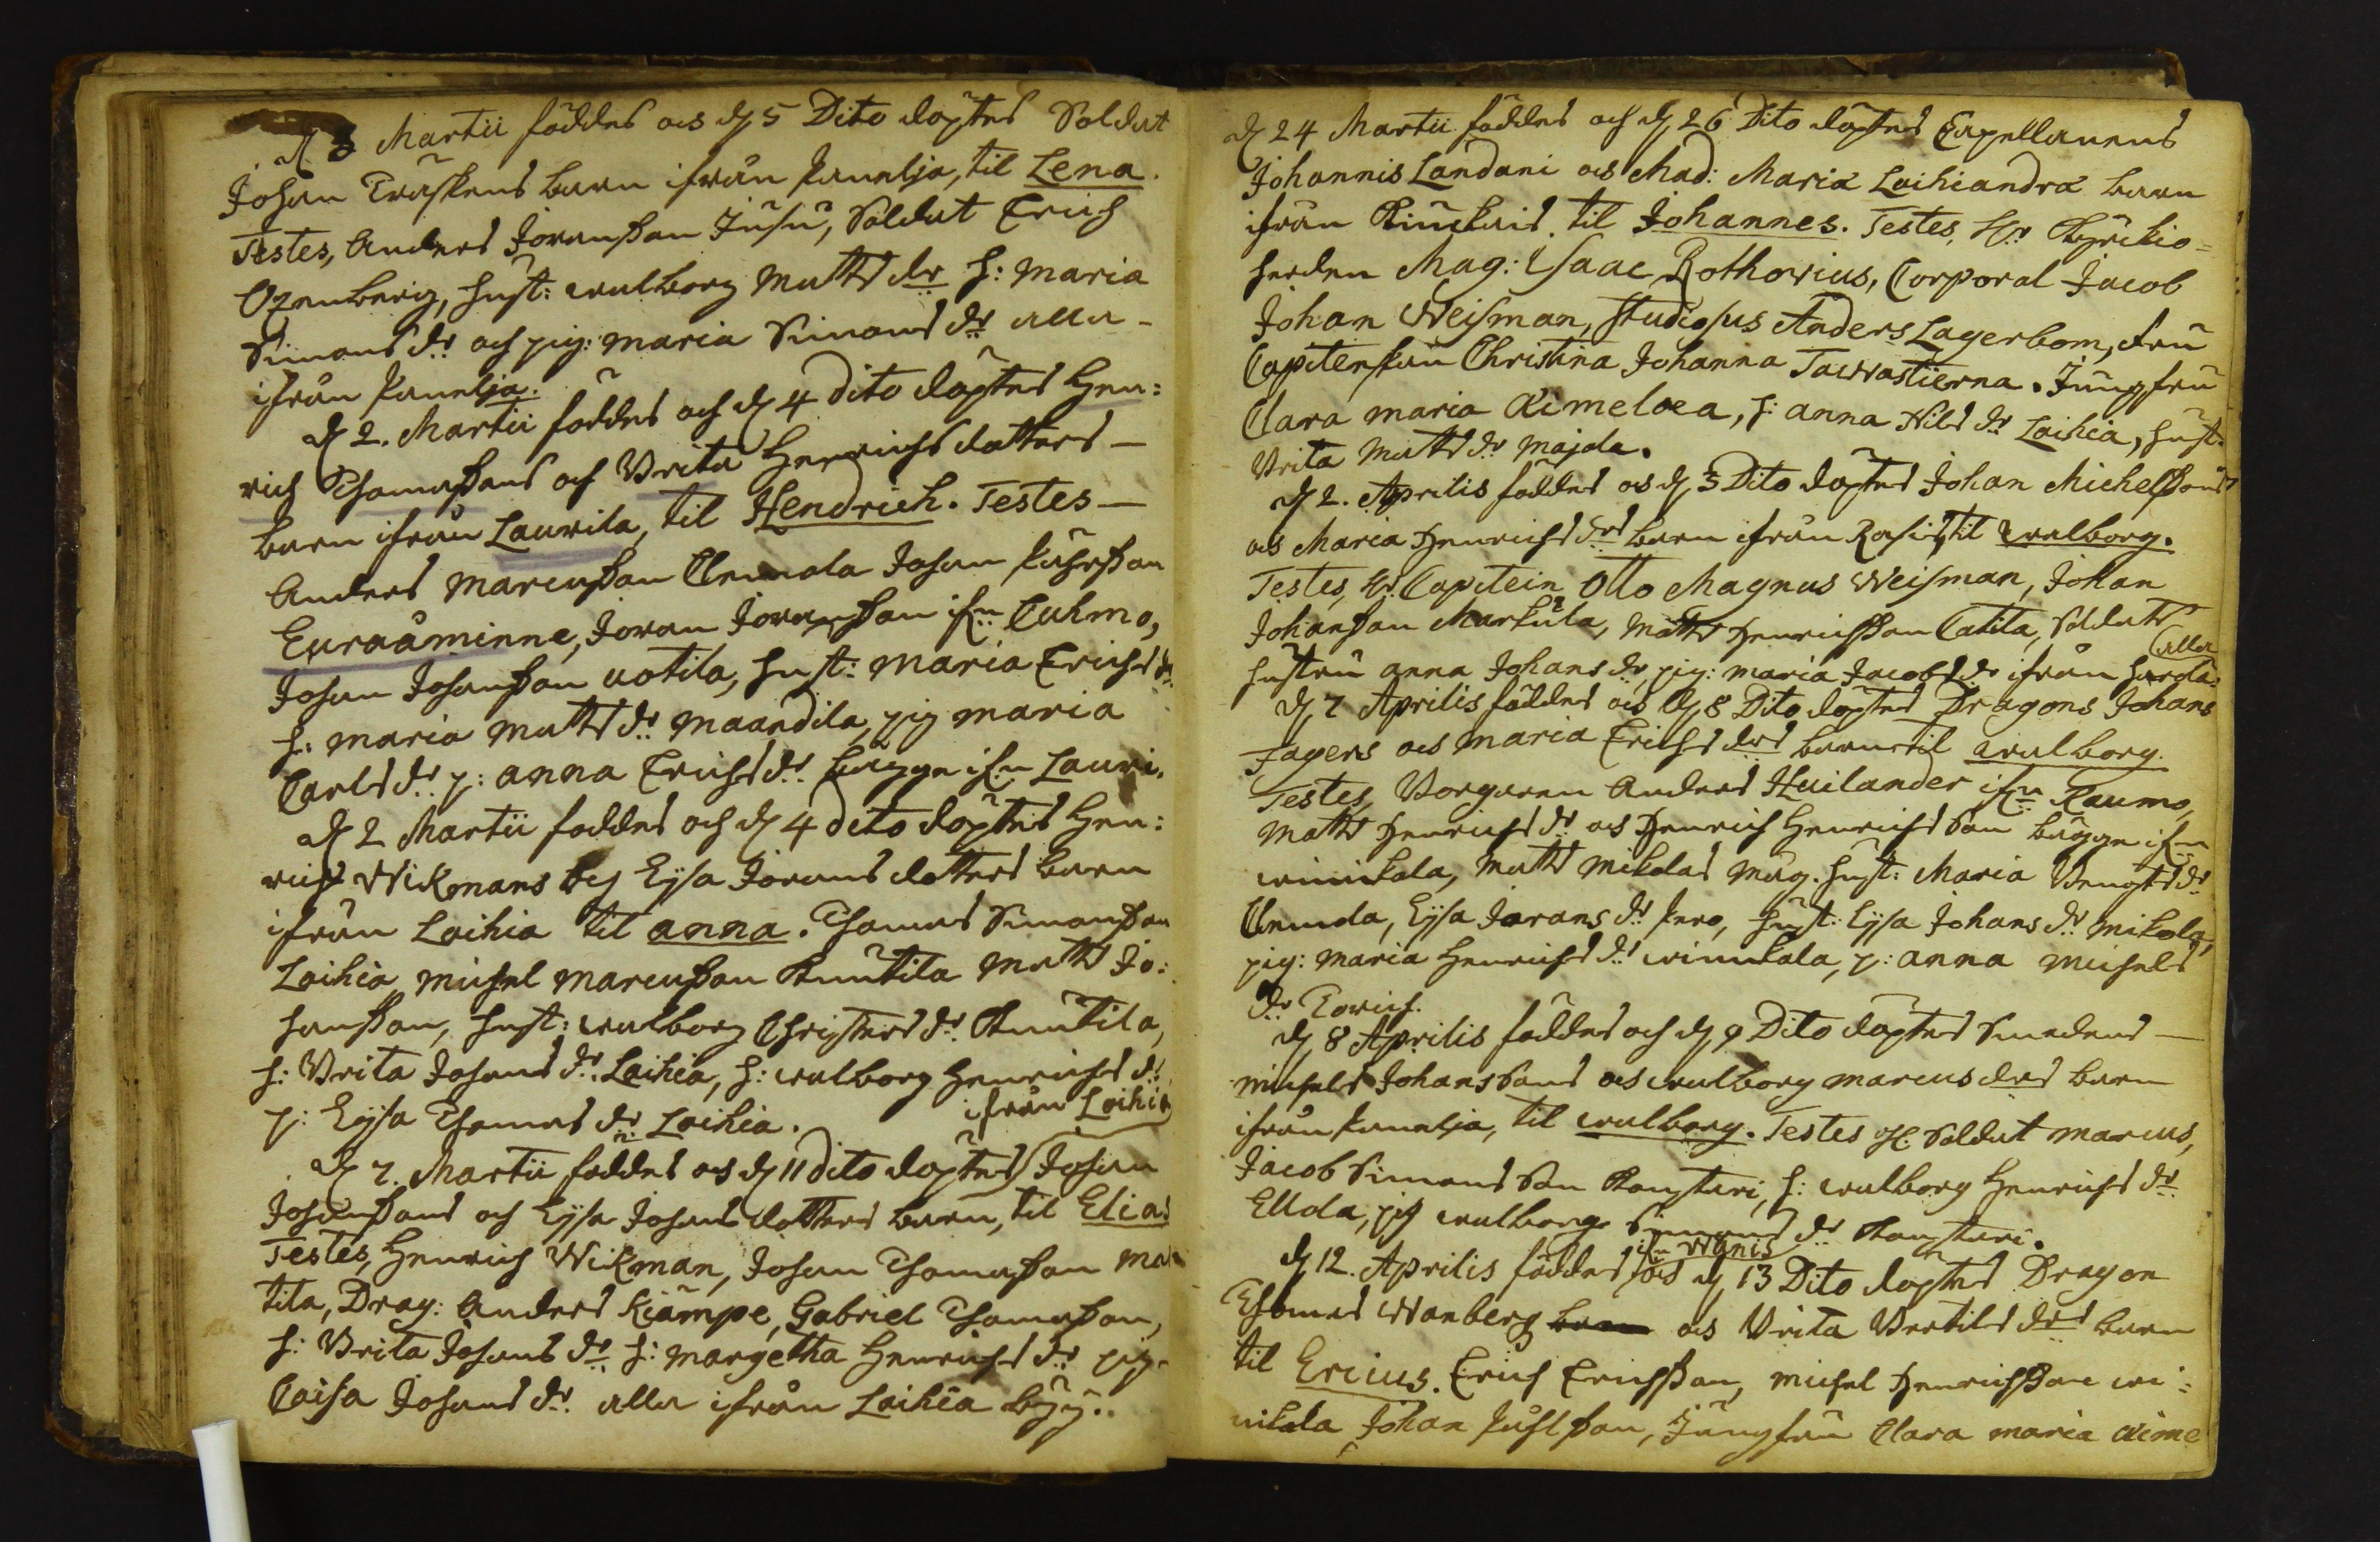 d 3 Martii föddes och d 5 Dito döptes Soldat
Johan Traskens barn ifrån Panelja, til Lena.
Testes, Anders Jöransson Jusu, Soldat Erich
Ogenberg, hust: walborg Matts dr h: Maria
Simons dr och pig: Maria Simons dr alla
ifrån Panelja.
d 2. Martii föddes och d 4 dito döptes Hen:
rich Thomassons och Brita Henrichs dotters
barn ifrån Laurila, til Hendrich. Testes
Anders Marcusson Clemola Johan
Euraåminne, Jöran Jöransson ifrn Cuhmo,
Johan Johansson uotila, hust: Maria Erichs dr
h: Maria Matts dr Maandila, pig Maria
Carls dr p: Anna Erichs dr bägge ifrn Lauri.
d 2 Martii föddes och d 4 dito döptes Hen:
rich Wikmans och Lijsa Jörans dotters barn
ifrån Laihia til Anna. Thomas Simonsson
Laihia, Michel Marcusson Knutila Matts Jo:
hansson, hust: walborg Christers dr Knutila,
h: Brita Johans dr Laihia, h: walborg Henrichs dr
p: Lijsa Thomas dr Laihia. ifrån Laihia
d 7. Martii föddes och d 11 dito döptes Johan
Johanssons och Lijsa Johans dotters barn, til Elias
Testes, Henrich Wikman, Johan Thomasson Ma
tila, Drag: Anders Kiämpe, Gabriel Thomasson,
h: Brita Johans dr h: Margetha Henrichs dr pig.
Caisa Johans dr alla ifrån Laihia by.
d 24 Martii föddes och d 26 Dito döptes Capellanens
Johannis Landani och Mad: Maria Laihiandra barn
ifrån til Johannes. Testes, Hr Kyrkio=
herden Mag: Isaac Rothovius, Corporal Jacob
Johan Weisman, Studiosus Anders Lagerbom, fru
Capitenskan Christina Johanna Tawastierna. Jungfru
Clara Maria Aimeloea, h: Anna Nils dr Laihia, hust:
Brita Matts dr Majda.
d 2. Aprilis föddes och d 3 Dito döptes Johan Michelssons
och Maria Henrichs drs barn ifrån til walborg.
Testes, Hr Capitein Otto Magnus Weisman, Johan
Johansson Markula, Matts Henrichsson Catila, Soldats
hustru Anna Johans dr, pig: Maria Jacobs dr ifrån alla
d 7 Aprilis föddes och d 8 Dito döptes Dragons Johans
Fagers och Maria Erichs drs barn til walborg.
Testes, Borgaren Anders Huilander ifrn Raumo,
Matts Henrichs dr och Henrich Henrichs son bägge ifrn
winikala, Matts Mikolas måg. hust: Maria Bengts dr
Clemola, Lijsa Jörans dr Pero, hust: Lijsa Johans dr Mikola,
pig: Maria Henrichs dr winikala, p: Anna Michels
dr
d 8 Aprilis föddes och d 9 Dito döptes Smedens
Michels Johanssons och walborg Marcus drs barn
ifrån Panelja, til walborg. Testes H. Soldat Marcus,
Jacob Simons son Kangtari, h: walborg Henrichs dr
Ellola, pig walborg Simons dr Kangtari.
ifrn Wänis
d 12. Aprilis föddes och d 13 Dito döptes Dragon
Thomas Wanberg och Brita Bertils drs barn
til Ericus. Erich Erichsson, Michel Henrichsson wi=
nikala Johan, Jungfru Clara Maria Aime